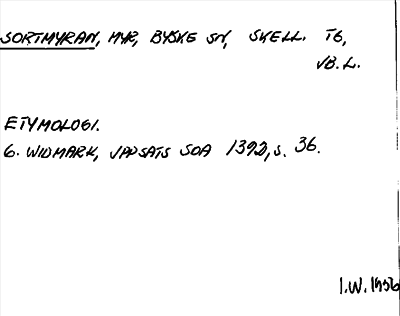 SORTMYRAN, MYR, BYSKE SN, SKELL. TG,
VB.L.
ETYMOLOGI.
G. WIDMARK, UPPSATS SOA 1392, S. 36.
I.W. 1956